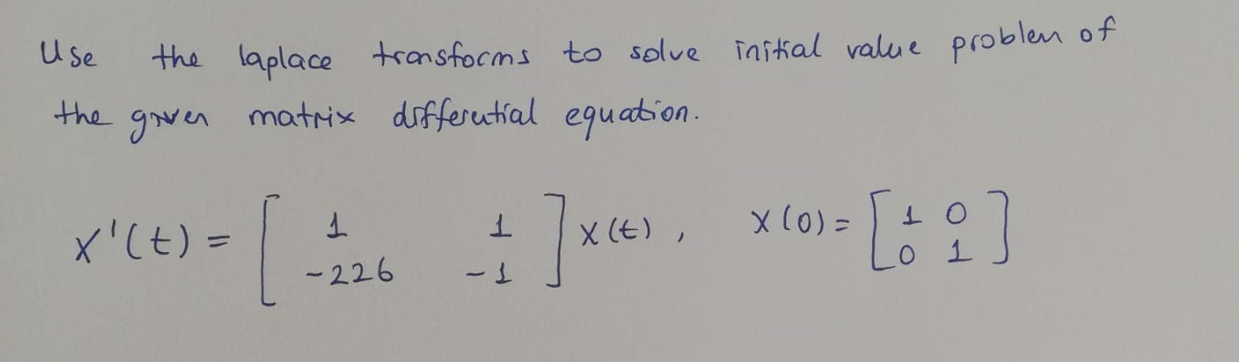 Use the laplace transforms to solve initial value problem of
the given matrix differential equation.
X'(t) = [ 1 1 ; -226 -1 ] X(t), X(0) = [ 1 0 ; 0 1 ]